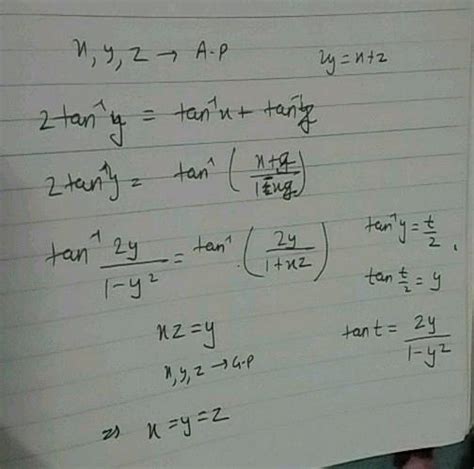 x, y, z → A.P 2y = x+z
2tan⁻¹y = tan⁻¹x + tan⁻¹z
2tan⁻¹y = tan⁻¹ ( x+z / 1-xz )
tan⁻¹ 2y / 1-y² = tan⁻¹ ( 2y / 1+xz )
tan⁻¹y = t/2
tan t/2 = y
tan t = 2y / 1-y²
xz = y
x, y, z → G.P
⇒ x = y = z